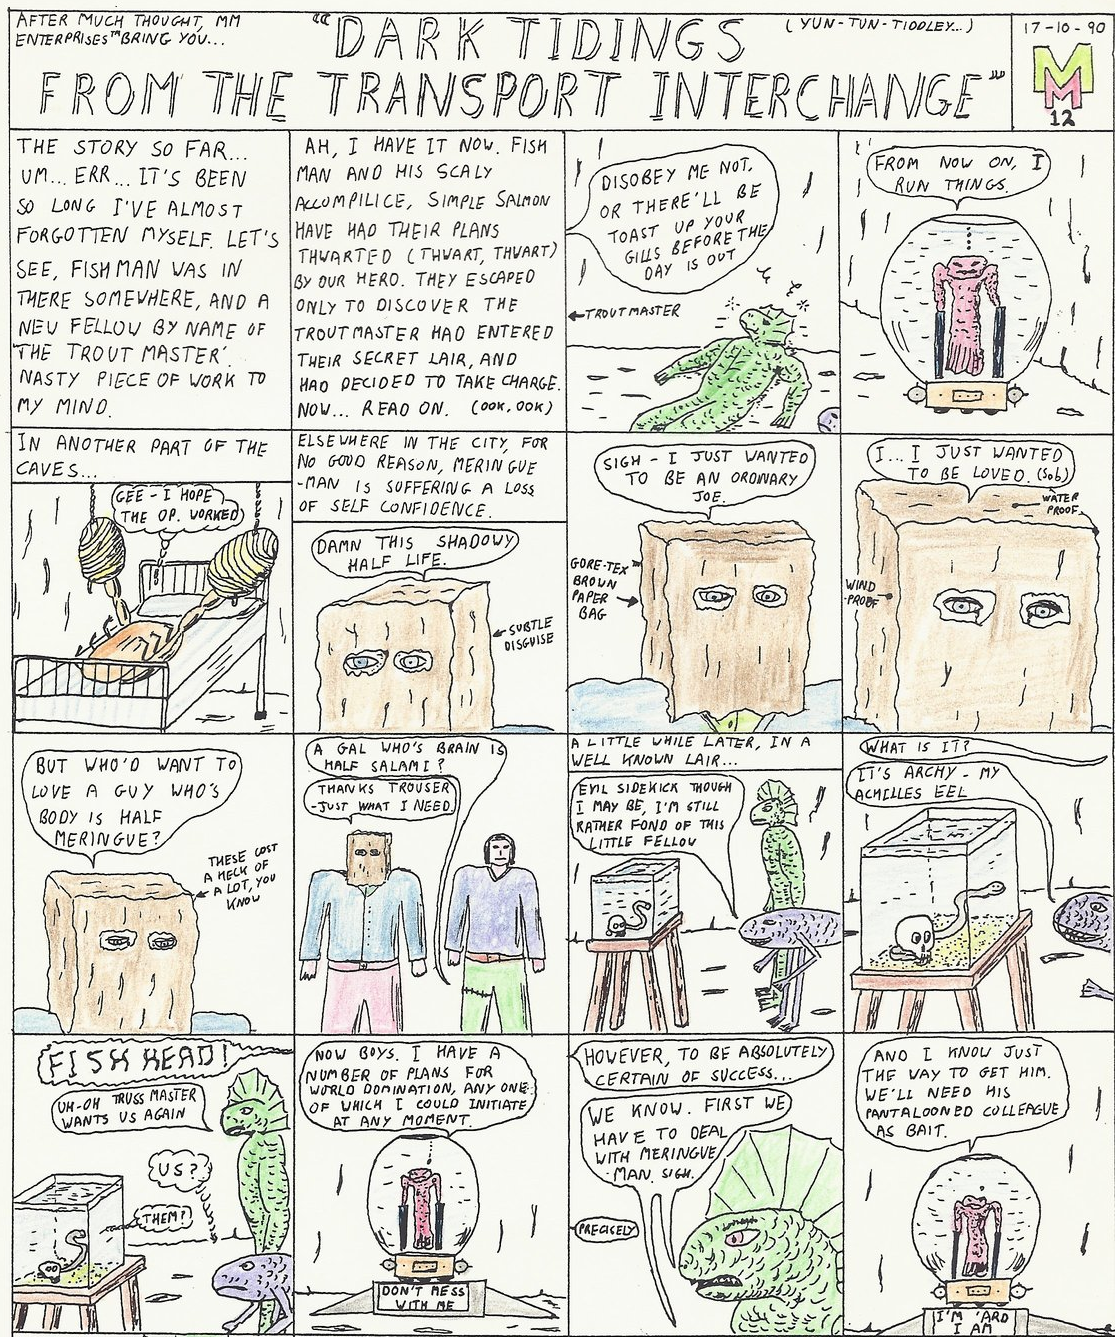 AFTER MUCH THOUGHT, MM
ENTERPRISES™ BRING YOU...
"DARK TIDINGS
FROM THE TRANSPORT INTERCHANGE"
(YUN-TUN-TIDDLEY...)
17-10-90
MM
12
THE STORY SO FAR...
UM... ERR... IT'S BEEN
SO LONG I'VE ALMOST
FORGOTTEN MYSELF. LET'S
SEE, FISHMAN WAS IN
THERE SOMEWHERE, AND A
NEW FELLOW BY NAME OF
'THE TROUT MASTER'.
NASTY PIECE OF WORK TO
MY MIND.
AH, I HAVE IT NOW. FISH
MAN AND HIS SCALY
ACCOMPILICE, SIMPLE SALMON
HAVE HAD THEIR PLANS
THWARTED (THWART, THWART)
BY OUR HERO. THEY ESCAPED
ONLY TO DISCOVER THE
TROUTMASTER HAD ENTERED
THEIR SECRET LAIR, AND
HAD DECIDED TO TAKE CHARGE.
NOW... READ ON. (OOK, OOK)
DISOBEY ME NOT,
OR THERE'LL BE
TOAST UP YOUR
GILLS BEFORE THE
DAY IS OUT
TROUTMASTER
FROM NOW ON, I
RUN THINGS.
IN ANOTHER PART OF THE
CAVES...
GEE - I HOPE
THE OP. WORKED
ELSEWHERE IN THE CITY, FOR
NO GOOD REASON, MERINGUE
-MAN IS SUFFERING A LOSS
OF SELF CONFIDENCE.
DAMN THIS SHADOWY
HALF LIFE.
SUBTLE
DISGUISE
SIGH - I JUST WANTED
TO BE AN ORDINARY
JOE.
GORE-TEX™
BROWN
PAPER
BAG
I... I JUST WANTED
TO BE LOVED. (SOB)
WATER
PROOF.
WIND
-PROOF
BUT WHO'D WANT TO
LOVE A GUY WHO'S
BODY IS HALF
MERINGUE?
THESE COST
A HECK OF
A LOT, YOU
KNOW
A GAL WHO'S BRAIN IS
HALF SALAMI?
THANKS TROUSER
-JUST WHAT I NEED.
A LITTLE WHILE LATER, IN A
WELL KNOWN LAIR...
EVIL SIDEKICK THOUGH
I MAY BE, I'M STILL
RATHER FOND OF THIS
LITTLE FELLOW
WHAT IS IT?
IT'S ARCHY - MY
ACHILLES EEL
FISH HEAD!
UH-OH TRUSS MASTER
WANTS US AGAIN
US?
THEM?
NOW BOYS. I HAVE A
NUMBER OF PLANS FOR
WORLD DOMINATION, ANY ONE
OF WHICH I COULD INITIATE
AT ANY MOMENT.
DON'T MESS
WITH ME
HOWEVER, TO BE ABSOLUTELY
CERTAIN OF SUCCESS...
WE KNOW. FIRST WE
HAVE TO DEAL
WITH MERINGUE
MAN. SIGH.
PRECISELY
AND I KNOW JUST
THE WAY TO GET HIM.
WE'LL NEED HIS
PANTALOONED COLLEAGUE
AS BAIT.
I'M 'ARD
I AM